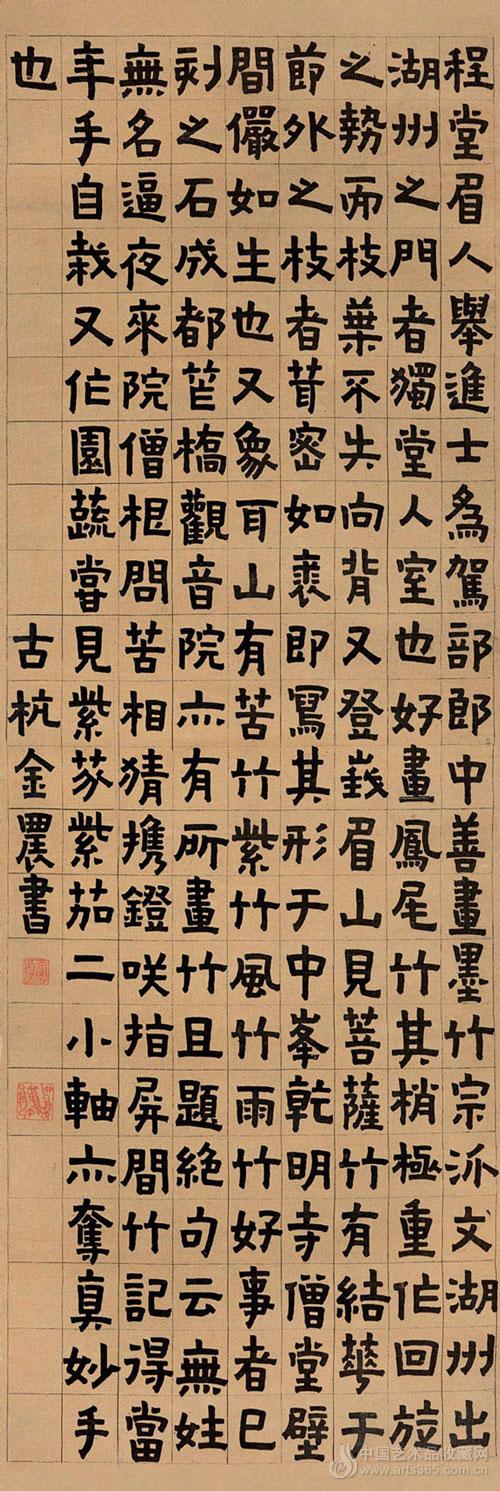 程堂眉人舉進士為駕部郎中善畫墨竹宗派文湖州出
湖州之門者獨堂入室也好畫鳳尾竹其梢極重作回旋
之勢而枝葉不失向背又登峩眉山見菩薩竹有結華于
節外之枝者茸密如裘即寫其形于中峯乾明寺僧堂壁
間儼如生也又象耳山有苦竹紫竹風竹雨竹好事者已
刻之石成都笮橋觀音院亦有所畫竹且題絕句云無姓
無名逼夜來院僧根問苦相猜携鐙咲指屏間竹記得當
年手自栽又作園蔬嘗見紫芥紫茄二小軸亦奪真妙手
也
古杭金農書
中国艺术品收藏网
www.arts365.com.cn